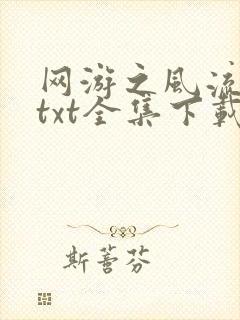 网游之风流
txt全集下载
斯蓍芬